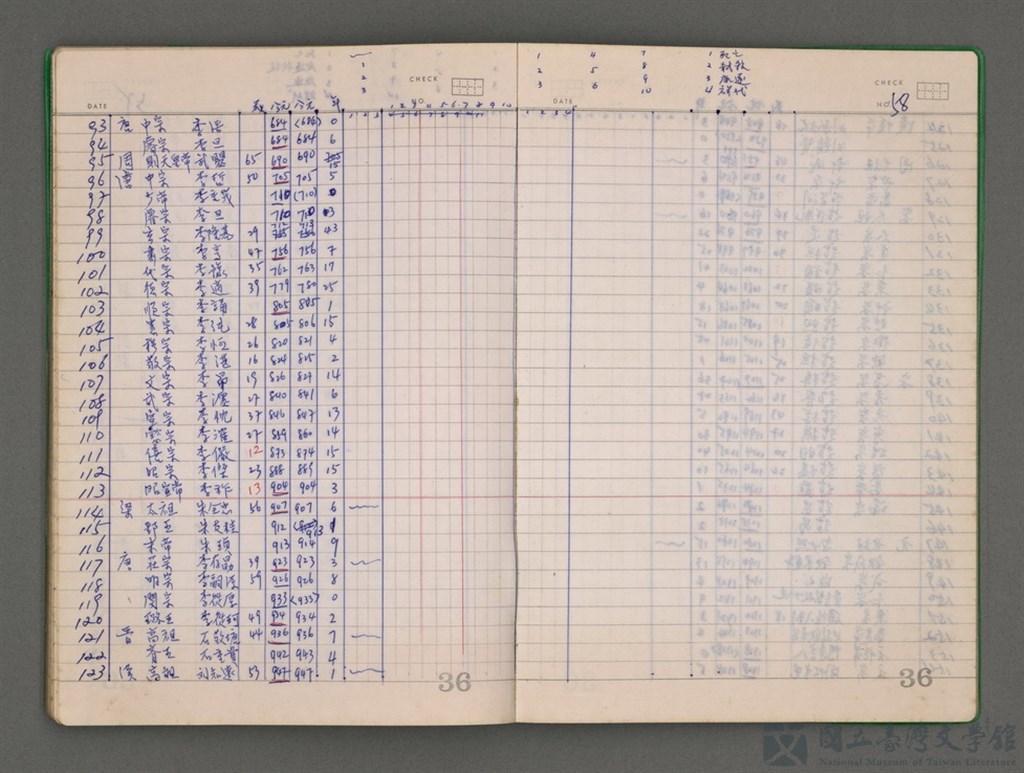 1 4 7 1 死亡
1 2 5 8 2 弒殺
2 3 6 9 3 廢逐
3 10 4 禪代
CHECK CHECK
DATE NO. 1 2 3 4 5 6 7 8 9 10 DATE NO 58
93 唐 中宗 李 684 (684) 0
94 睿宗 李旦 684 684 6
95 周 則天皇帝 武曌 65 690 690 15
96 唐 中宗 李哲 50 705 705 5
97 少帝 李重茂 710 (710) 0
98 睿宗 李旦 710 710 3
99 玄宗 李隆基 29 712 43
100 肅宗 李亨 47 756 756 7
101 代宗 李 35 762 763 17
102 德宗 李适 39 779 780 25
103 順宗 李誦 805 805 1
104 憲宗 李純 28 805 806 15
105 穆宗 李恒 26 820 821 4
106 敬宗 李湛 16 824 825 2
107 文宗 李昂 19 826 827 14
108 武宗 李瀍 27 840 841 6
109 宣宗 李忱 37 846 847 13
110 懿宗 李漼 27 859 860 14
111 僖宗 李儼 12 873 874 15
112 昭宗 李傑 23 888 889 15
113 昭宣帝 李祚 13 904 904 3
114 梁 太祖 朱全忠 56 907 907 6
115 郢王 朱友珪 912 913 1
116 末帝 朱瑱 913 914 9
117 唐 莊宗 李存勗 39 923 923 3
118 明宗 李嗣源 59 926 926 8
119 閔宗 李從厚 933 (933) 0
120 潞王 李從珂 49 934 934 2
121 晉 高祖 石敬瑭 44 936 936 7
122 齊王 石重貴 942 943 4
123 漢 高祖 刘知遠 53 947 947 1
36 36
國立臺灣文學館
National Museum of Taiwan Literature